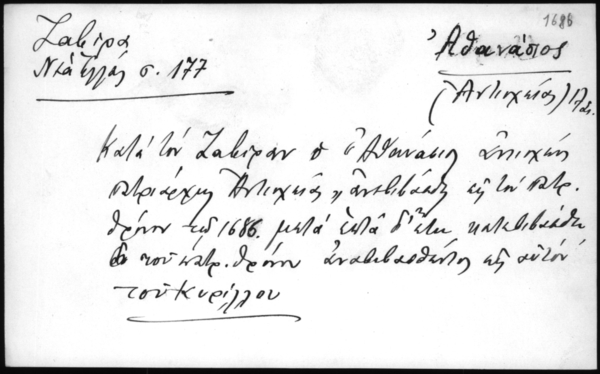 1686
Ζαβίρα
Νέα Ἑλλάς σ. 177
Ἀθανάσιος
(Ἀντιοχείας) Πατ.
Κατὰ τὸν Ζαβίραν ὁ Ἀθανάσιος
πατριάρχης Ἀντιοχείας, ἀνεβιβάσθη εἰς τὸν πατρ.
θρόνον τῷ 1686. μετὰ ἑπτὰ δ' ἔτη κατεβιβάσθη
τοῦ πατρ. θρόνου ἀναβιβασθέντος εἰς αὐτὸν
τοῦ Κυρίλλου